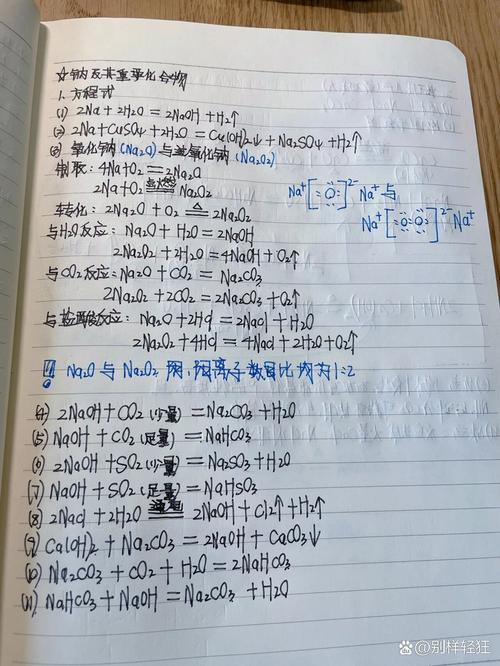 ☆钠及其重要化合物
1.方程式
(1) 2Na+2H2O=2NaOH+H2↑
(2) 2Na+CuSO4+2H2O=Cu(OH)2↓+Na2SO4+H2↑
(3) 氧化钠(Na2O)与过氧化钠(Na2O2)
制取:4Na+O2=2Na2O
2Na+O2 点燃 Na2O2
Na+[:O:]2-Na+与
Na+[:O:O:]2-Na+
转化:2Na2O+O2 △ 2Na2O2
与H2O反应:Na2O+H2O=2NaOH
2Na2O2+2H2O=4NaOH+O2↑
与CO2反应:Na2O+CO2=Na2CO3
2Na2O2+2CO2=2Na2CO3+O2↑
与盐酸反应:Na2O+2HCl=2NaCl+H2O
2Na2O2+4HCl=4NaCl+2H2O+O2↑
Na2O与Na2O2 阴,阳离子数目比均为1:2
(4) 2NaOH+CO2(少量)=Na2CO3+H2O
(5) NaOH+CO2(足量)=NaHCO3
(6) 2NaOH+SO2(少量)=Na2SO3+H2O
(7) NaOH+SO2(足量)=NaHSO3
(8) 2NaCl+2H2O 通电 2NaOH+Cl2↑+H2↑
(9) Ca(OH)2+Na2CO3=2NaOH+CaCO3↓
(10) Na2CO3+CO2+H2O=2NaHCO3
(11) NaHCO3+NaOH=Na2CO3+H2O
@别样轻狂